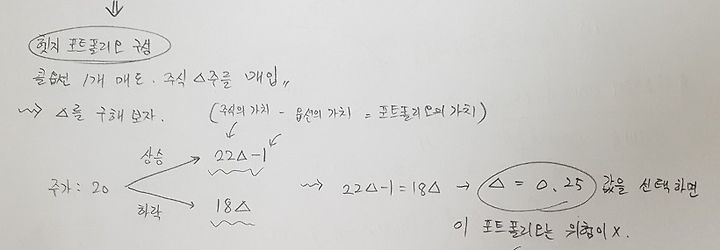 헷지 포트폴리오 구성
콜옵션 1개 매도. 주식 △주를 매입,,
⇝ △를 구해 보자. (주식의 가치 - 옵션의 가치 = 포트폴리오의 가치)
상승 22△-1
주가: 20 ⇝ 22△-1 = 18△ → △ = 0.25 값을 선택하면
하락 18△
이 포트폴리오는 위험이 X.